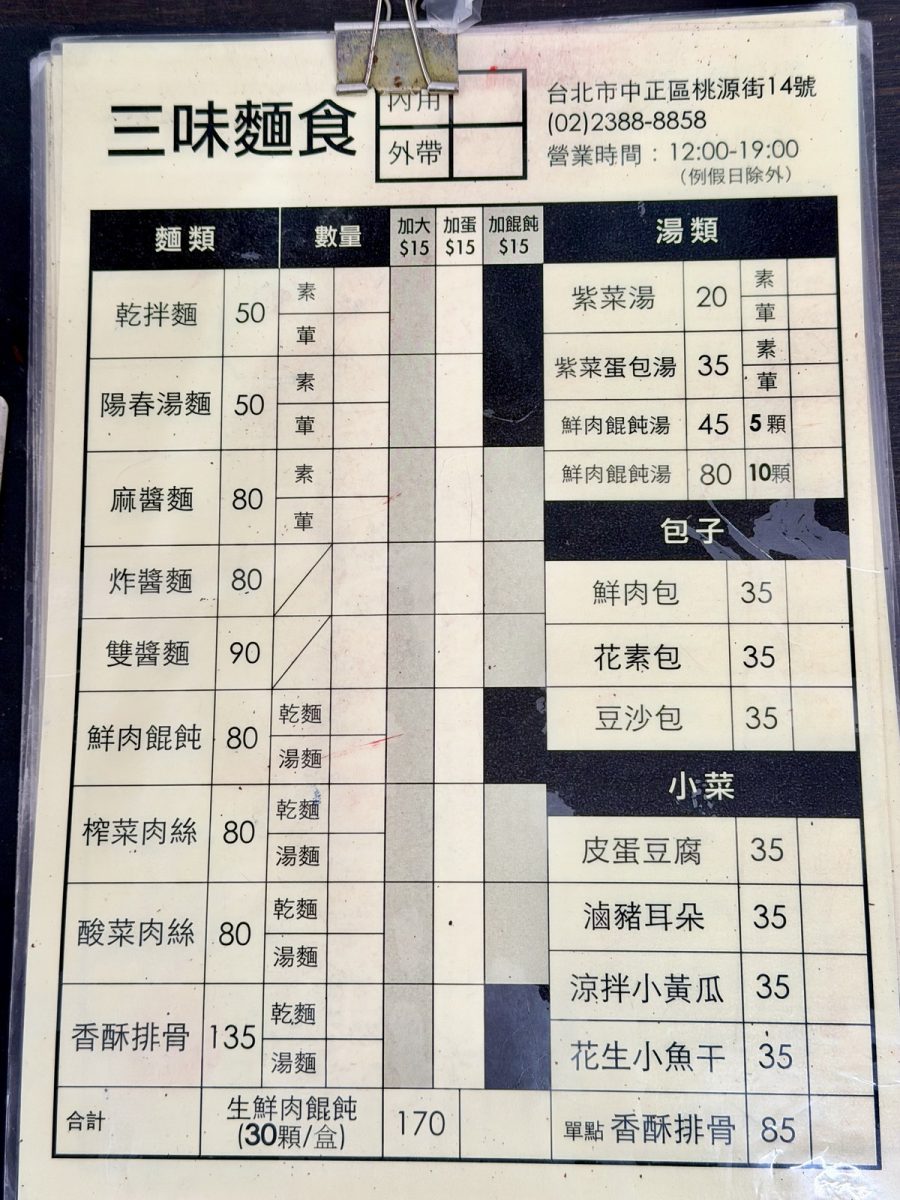 三味麵食
內用
外帶
台北市中正區桃源街14號
(02)2388-8858
營業時間：12:00-19:00
（例假日除外）
麵類 數量 加大 $15 加蛋 $15 加餛飩 $15
乾拌麵 50 素
葷
陽春湯麵 50 素
葷
麻醬麵 80 素
葷
炸醬麵 80
雙醬麵 90
鮮肉餛飩 80 乾麵
湯麵
榨菜肉絲 80 乾麵
湯麵
酸菜肉絲 80 乾麵
湯麵
香酥排骨 135 乾麵
湯麵
合計
生鮮肉餛飩
(30顆/盒) 170
湯類
紫菜湯 20 素
葷
紫菜蛋包湯 35 素
葷
鮮肉餛飩湯 45 5顆
鮮肉餛飩湯 80 10顆
包子
鮮肉包 35
花素包 35
豆沙包 35
小菜
皮蛋豆腐 35
滷豬耳朵 35
涼拌小黃瓜 35
花生小魚干 35
單點 香酥排骨 85